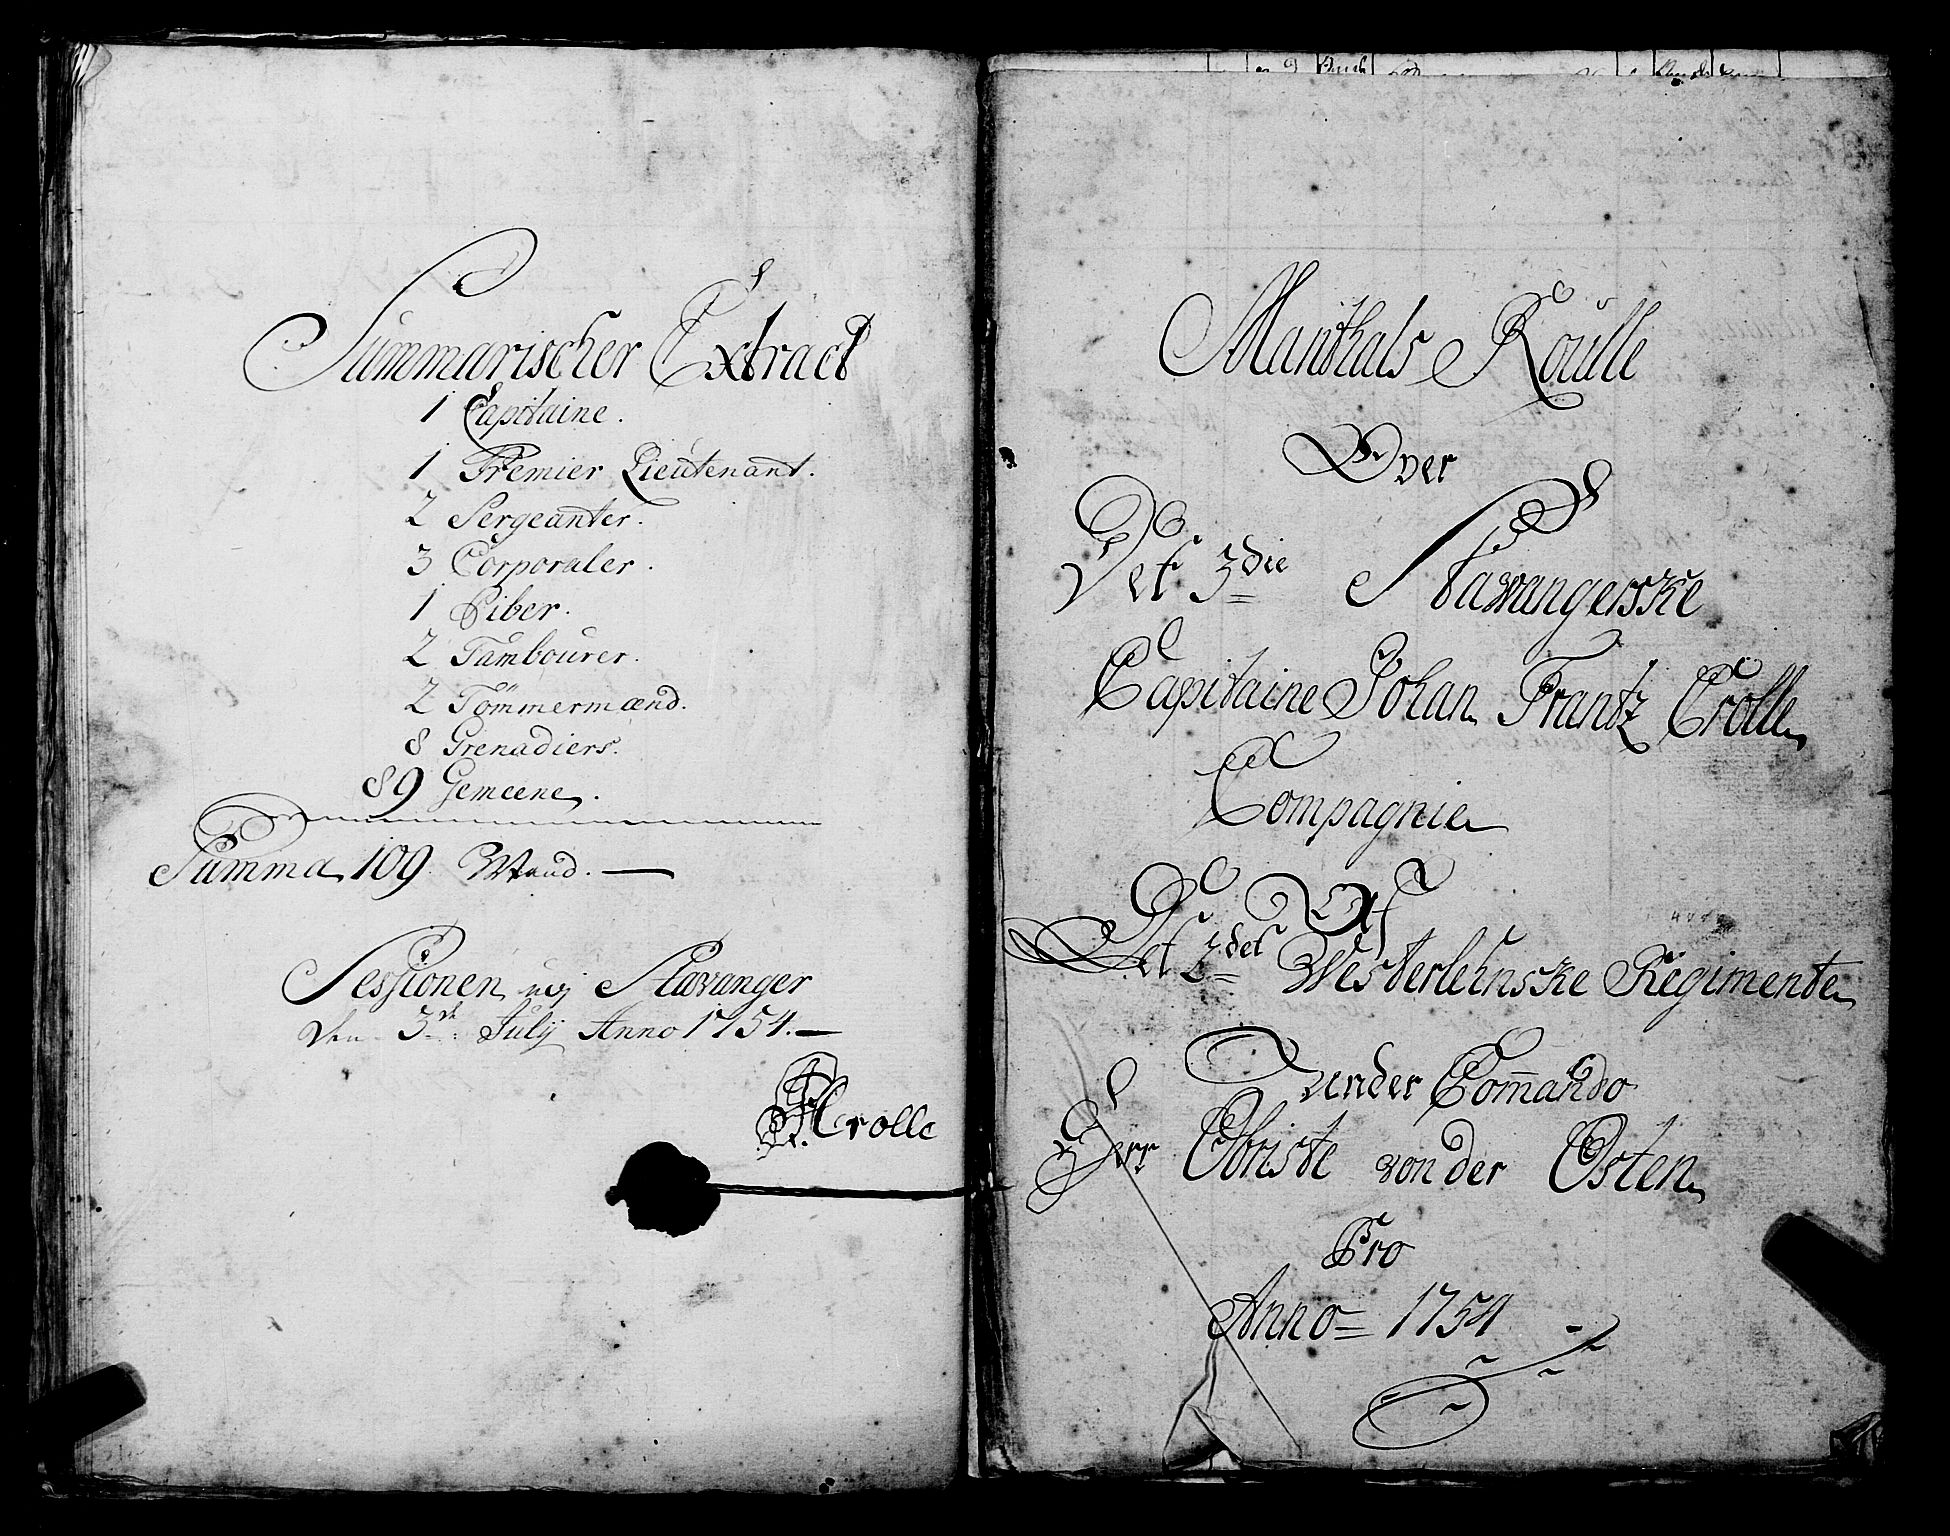 Summarischer Extract
1 Capitaine.
1 Premier Lieutenant.
2 Sergeanter.
3 Corporaler.
1 Piber.
2 Tambourer.
2 Tömmermænd.
8 Grenadiers.
89 Gemeene.
Summa 109. Mand.
Sessionen vej Stavanger
den 3de July Anno 1754.
Crolle
Manthals Roulle
Over
Det 3die Stavangerske
Capitaine Johan Frantz Crolle
Compagnie
Af
Det 2det Westerlehnske Regimente
Under Commando
Herr Obriste von der Osten
Pro
Anno = 1754